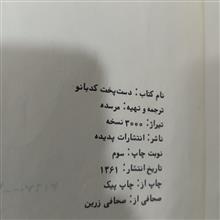 نام کتاب: دست‌پخت کدبانو
ترجمه و تهیه: مرسده
تیراژ: ۳۰۰۰ نسخه
ناشر: انتشارات پدیده
نوبت چاپ: سوم
تاریخ انتشار: ۱۳۶۱
چاپ از: چاپ پیک
صحافی از: صحافی زرین